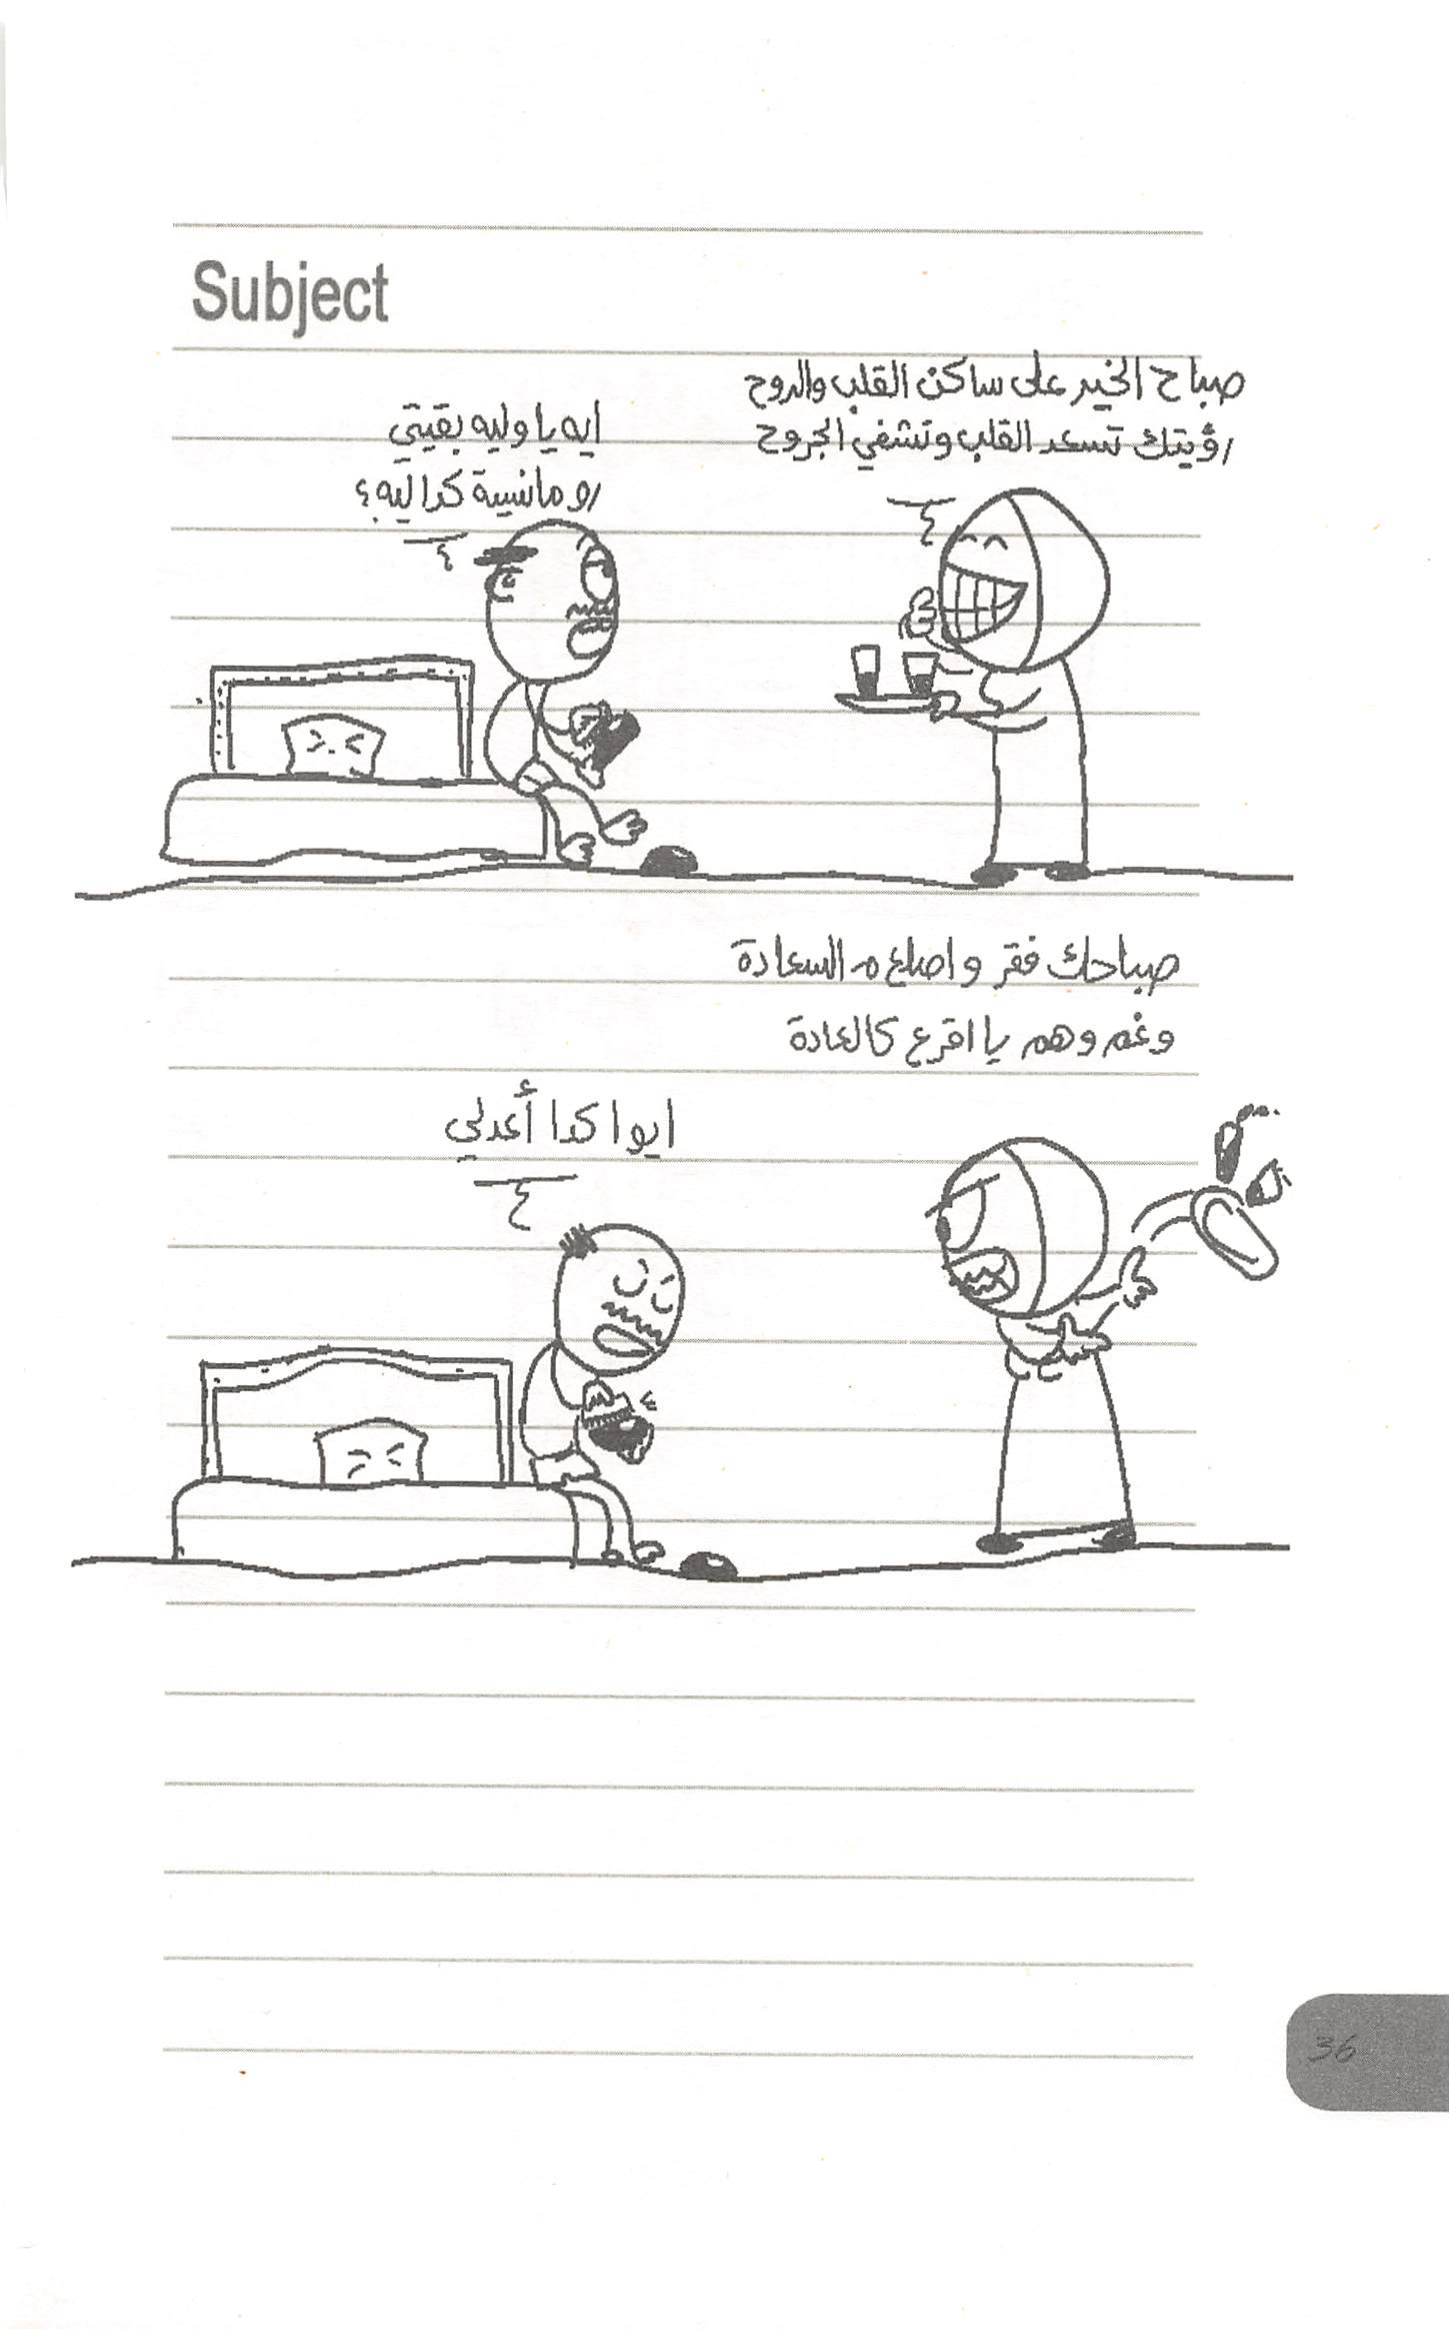 Subject
صباح الخير على ساكن القلب والروح
رؤيتك تسعد القلب وتشفي الجروح
ايه يا وليه بقيتي
رومانسية كدا ليه؟
صباحك فقر واصلع م السعادة
وغم وهم يا اقرع كالعادة
ايوا كدا أعدلي
36